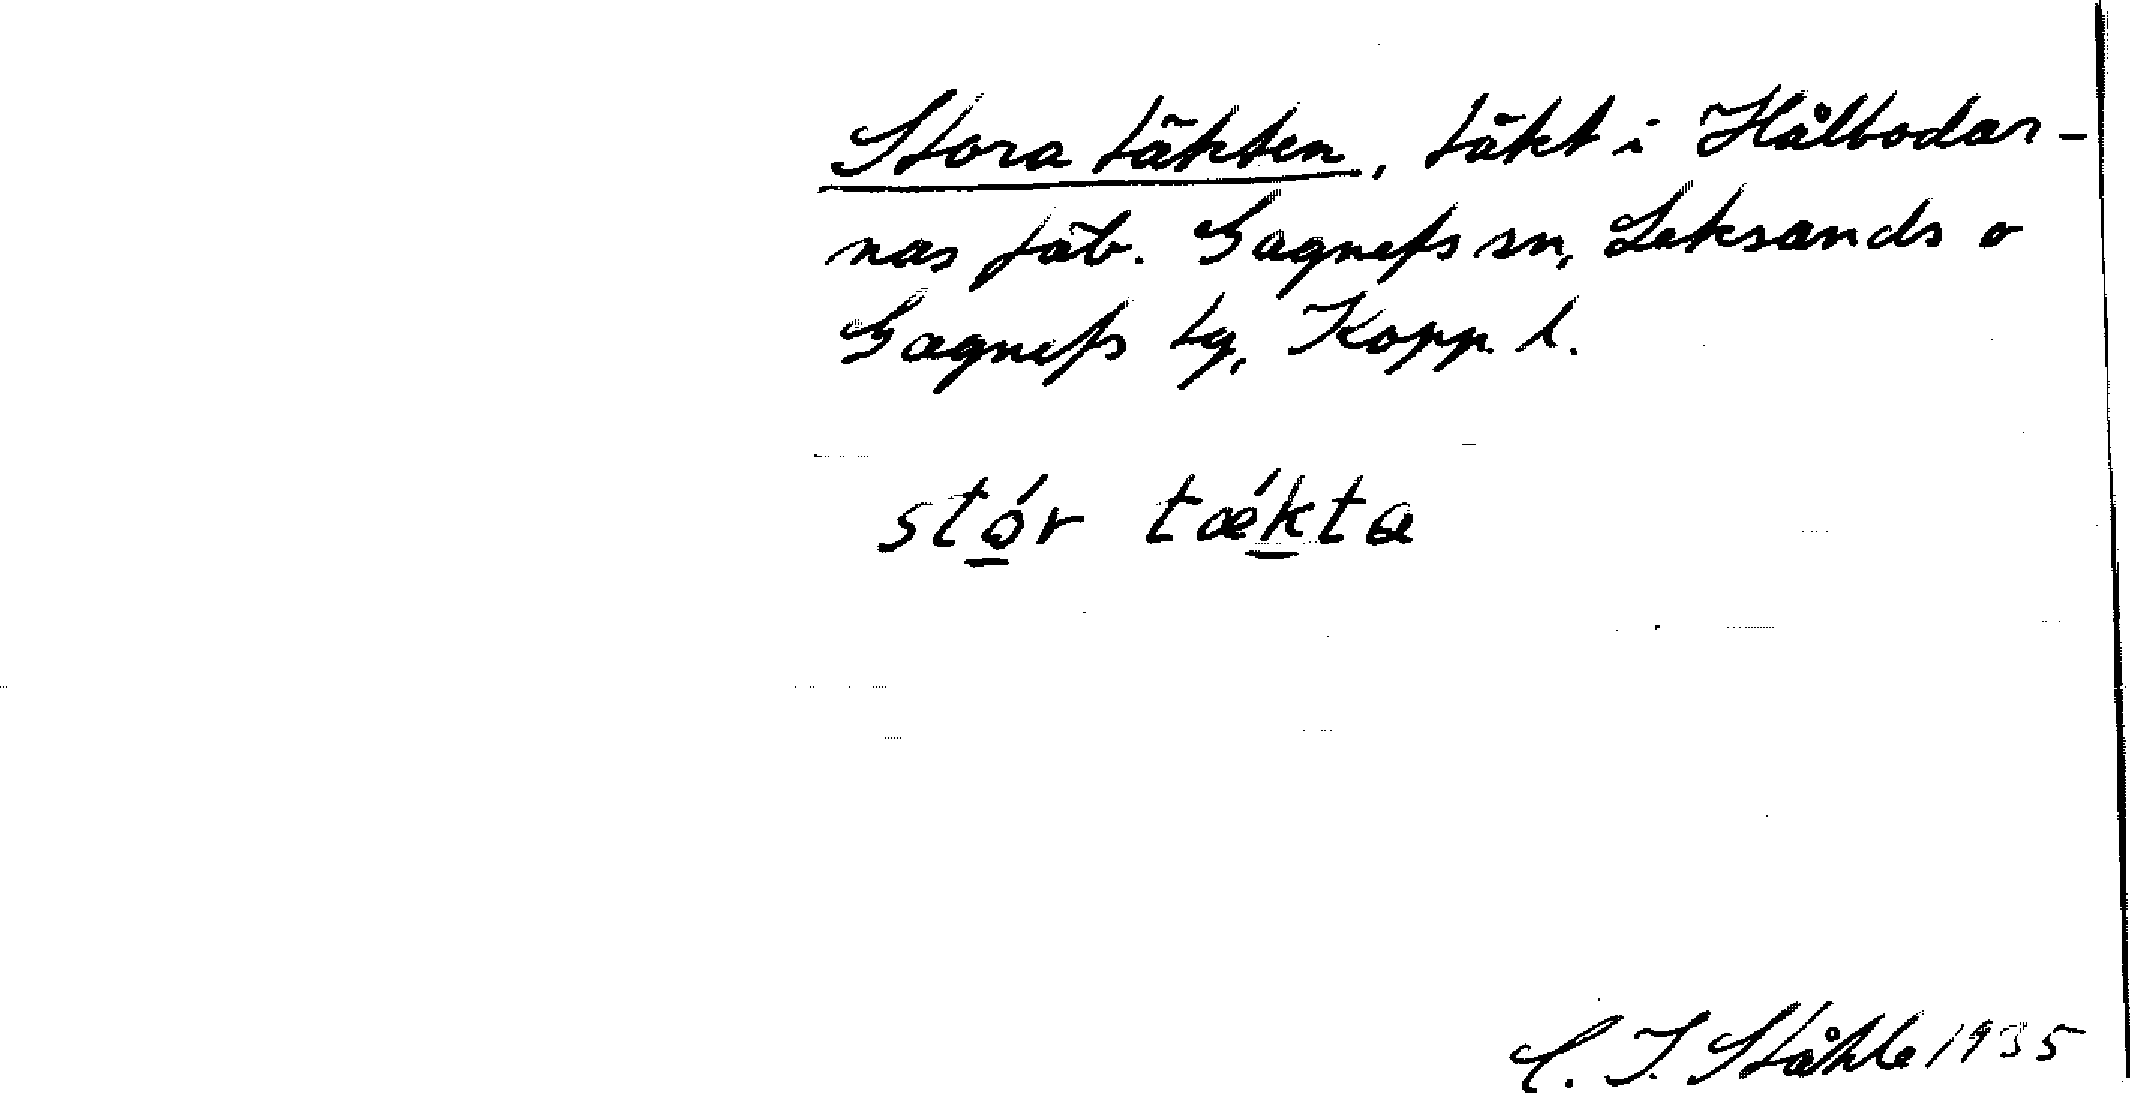 Stora täkten, täkt i Hålbodar-
nas fäb. Gagnefs sn, Leksands o
Gagnefs tg, Kopp. l.
stór tǽkta
C. I. Ståhle 1935